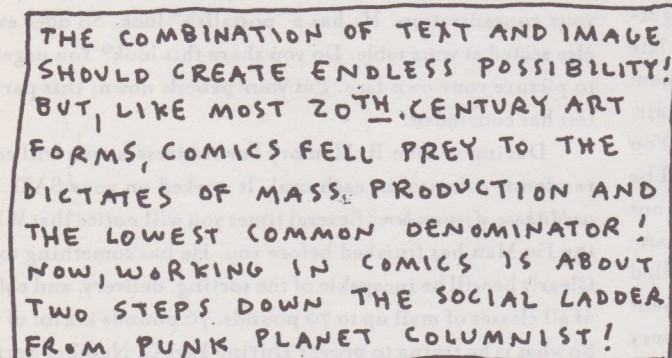 THE COMBINATION OF TEXT AND IMAGE
SHOULD CREATE ENDLESS POSSIBILITY!
BUT, LIKE MOST 20TH. CENTURY ART
FORMS, COMICS FELL PREY TO THE
DICTATES OF MASS PRODUCTION AND
THE LOWEST COMMON DENOMINATOR!
NOW, WORKING IN COMICS IS ABOUT
TWO STEPS DOWN THE SOCIAL LADDER
FROM PUNK PLANET COLUMNIST!